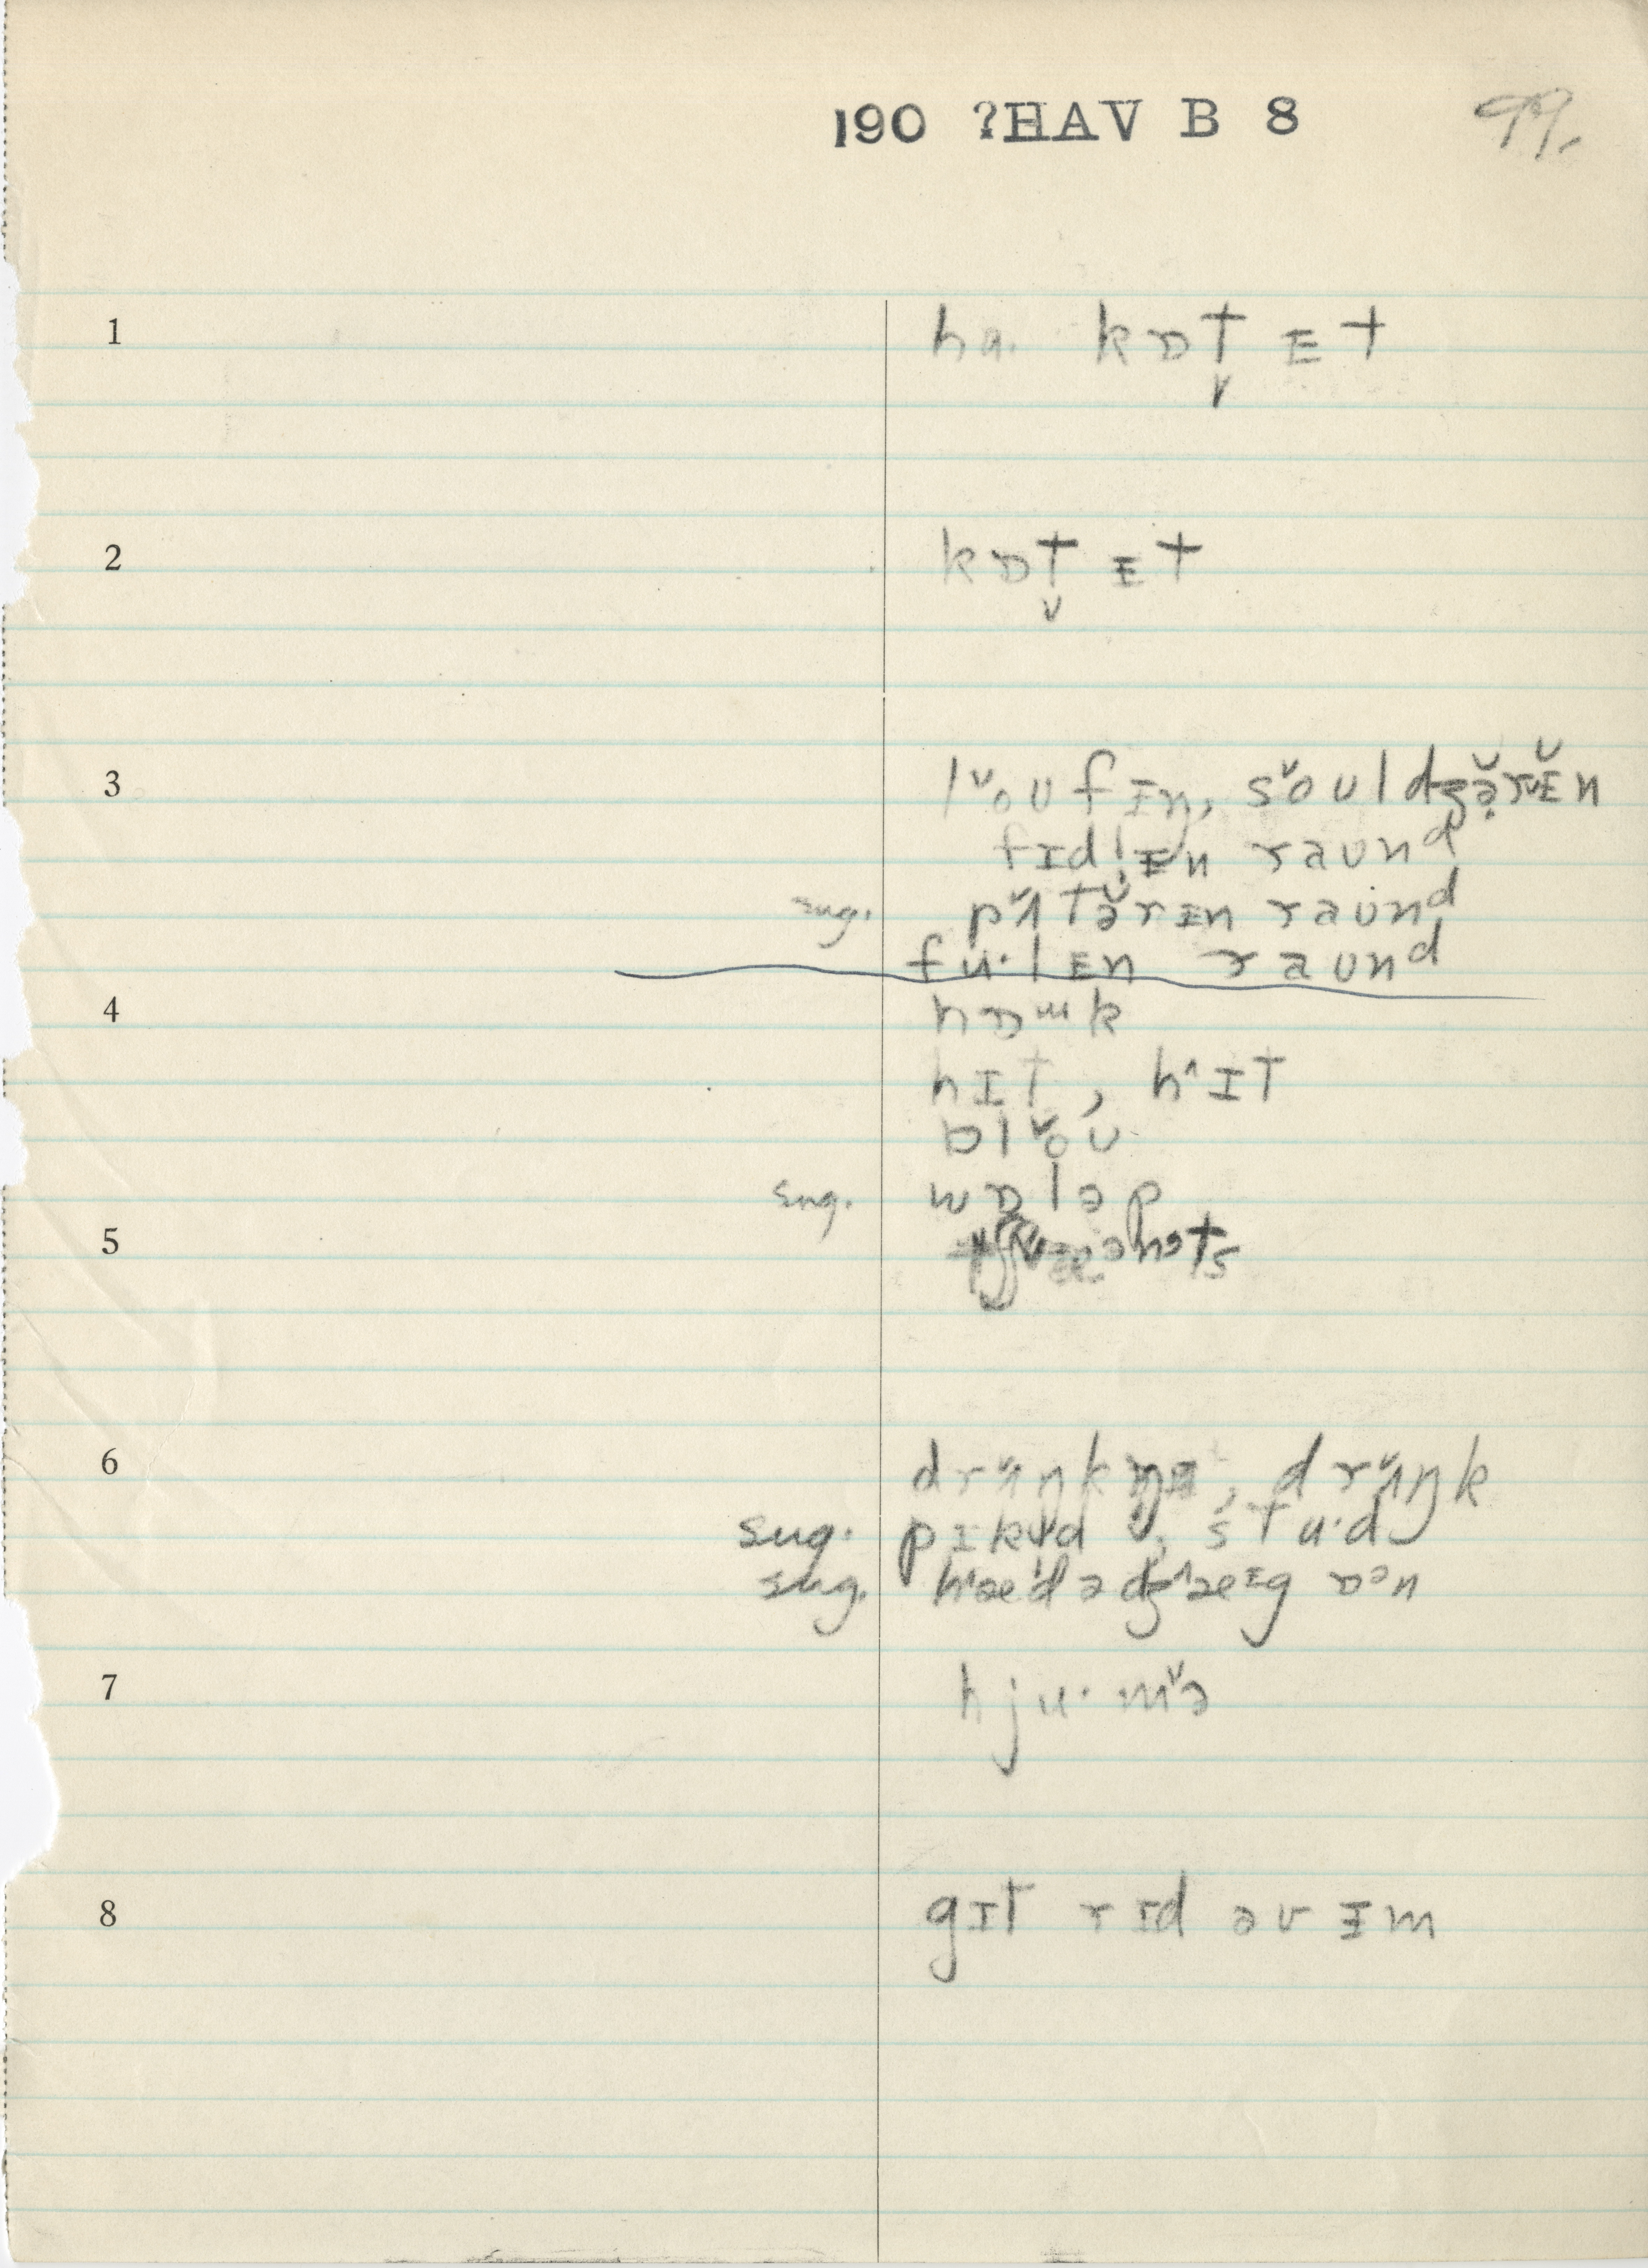 190 ?HAV B 8 99.
1 ha. kɒt̬ ᴇt
2 kɒt̬ ᴇt
3 l˅oʊfɪŋ, s˅oʊldʒə̣̆rɪ̆n
fɪdl̩ɪn raʊnᵈ
sug. p˅ʌtə̆rɪn raʊnᵈ
fu·lɪn raʊnᵈ
4 nɒᵚk
hɪt, h^ɪt
bl˅oʊ
sug. wɒləp
5
6 dr˅ʌŋk, dr˅ʌŋk
sug. pɪk, stu·d
sug. h^æd ə dʒ^æᶦg ɒᵊn
7 hju·m˅ə
8 gɪt rɪd əv ɪm